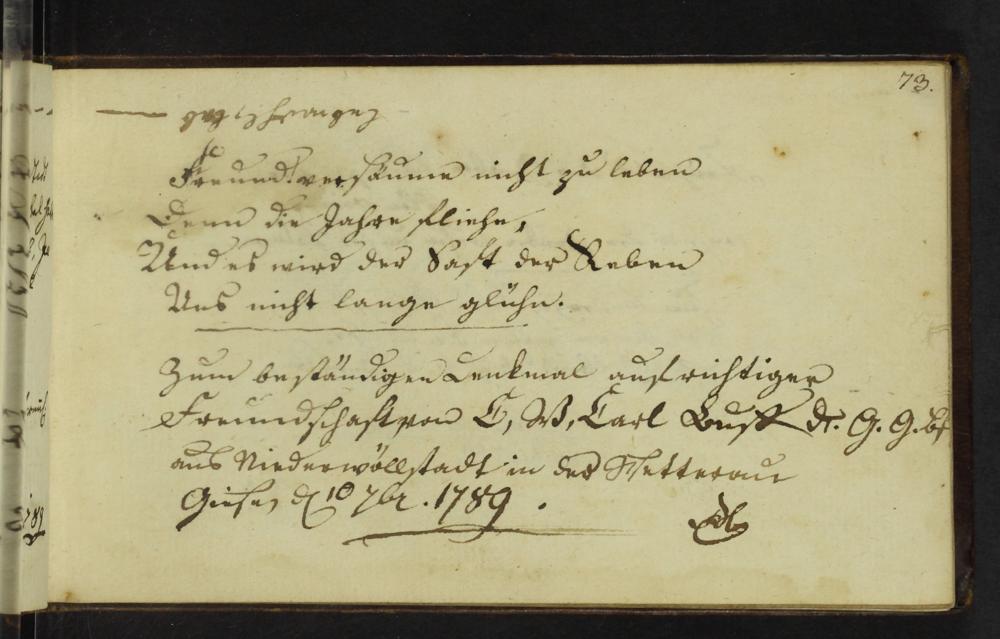 73.
Freund! versäume nicht zu leben
Denn die Jahre fliehn,
Und es wird der Saft der Reben
Uns nicht lange glühn.
Zum beständigen Denkmal aufrichtiger
Freundschaft von C, W, Carl Buff d. G. G. bfl
aus Niederwöllstadt in der Wetterau
Giesen d 10 7br. 1789.